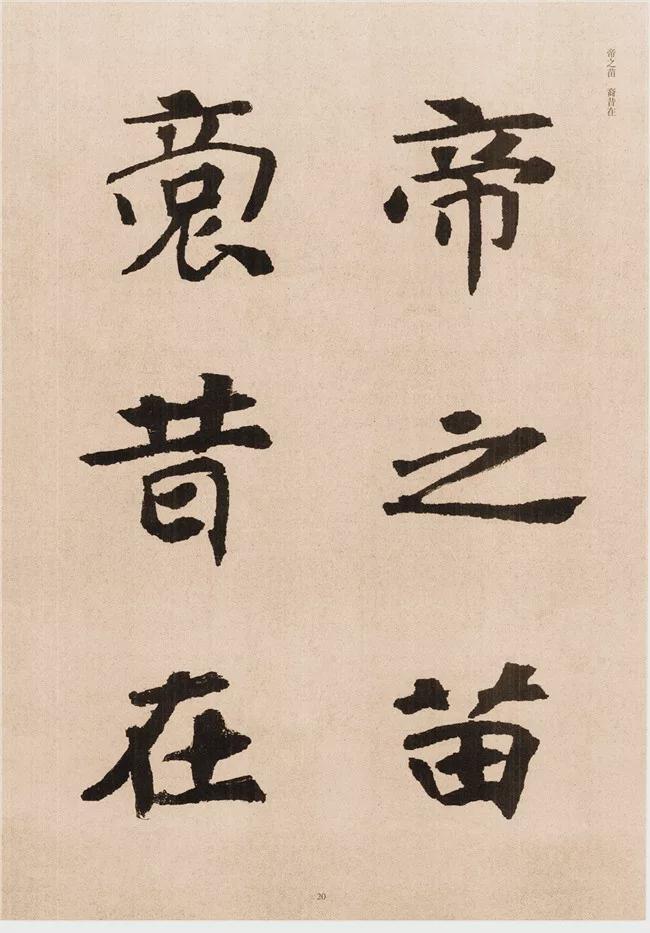 帝之苗 裔昔在
帝之苗
裔昔在
20